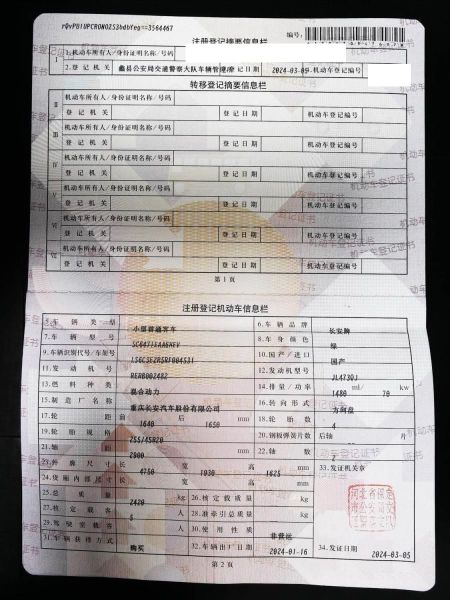 注册登记摘要信息栏
编号:
1.机动车所有人/身份证明名称/号码
2.登记机关 蠡县公安局交通警察大队车辆管理所 登记日期 2024-03-05 机动车登记编号
转移登记摘要信息栏
Ⅱ 机动车所有人/身份证明名称/号码
登记机关 登记日期 机动车登记编号
Ⅲ 机动车所有人/身份证明名称/号码
登记机关 登记日期 机动车登记编号
Ⅳ 机动车所有人/身份证明名称/号码
登记机关 登记日期 机动车登记编号
Ⅴ 机动车所有人/身份证明名称/号码
登记机关 登记日期 机动车登记编号
Ⅵ 机动车所有人/身份证明名称/号码
登记机关 登记日期 机动车登记编号
Ⅶ 机动车所有人/身份证明名称/号码
登记机关 登记日期 机动车登记编号
第1页
注册登记机动车信息栏
5.车辆类型 小型普通客车 6.车辆品牌 长安牌
7.车辆型号 8.车身颜色 绿
9.车辆识别代号/车架号 10.国产/进口 国产
11.发动机号 12.发动机型号 JL473QJ
13.燃料种类 混合动力 14.排量/功率 1480 ml/ 70 kw
15.制造厂名称 重庆长安汽车股份有限公司 16.转向形式 方向盘
17.轮距 前 1640 后 1650 mm 18.轮胎数 4
19.轮胎规格 255/45R20 20.钢板弹簧片数 后轴 片
21.轴距 2900 mm 22.轴数
23.外廓尺寸 长 4750 宽 1930 高 1625 mm 33.发证机关章
24.货厢内部尺寸 长 宽 高 mm
25.总质量 2420 kg 26.核定载质量 kg
27.核定载客 5 人 28.准牵引总质量 kg
29.驾驶室载客 人 30.使用性质 非营运
31.车辆获得方式 购买 32.车辆出厂日期 2024-01-16 34.发证日期 2024-03-05
第2页